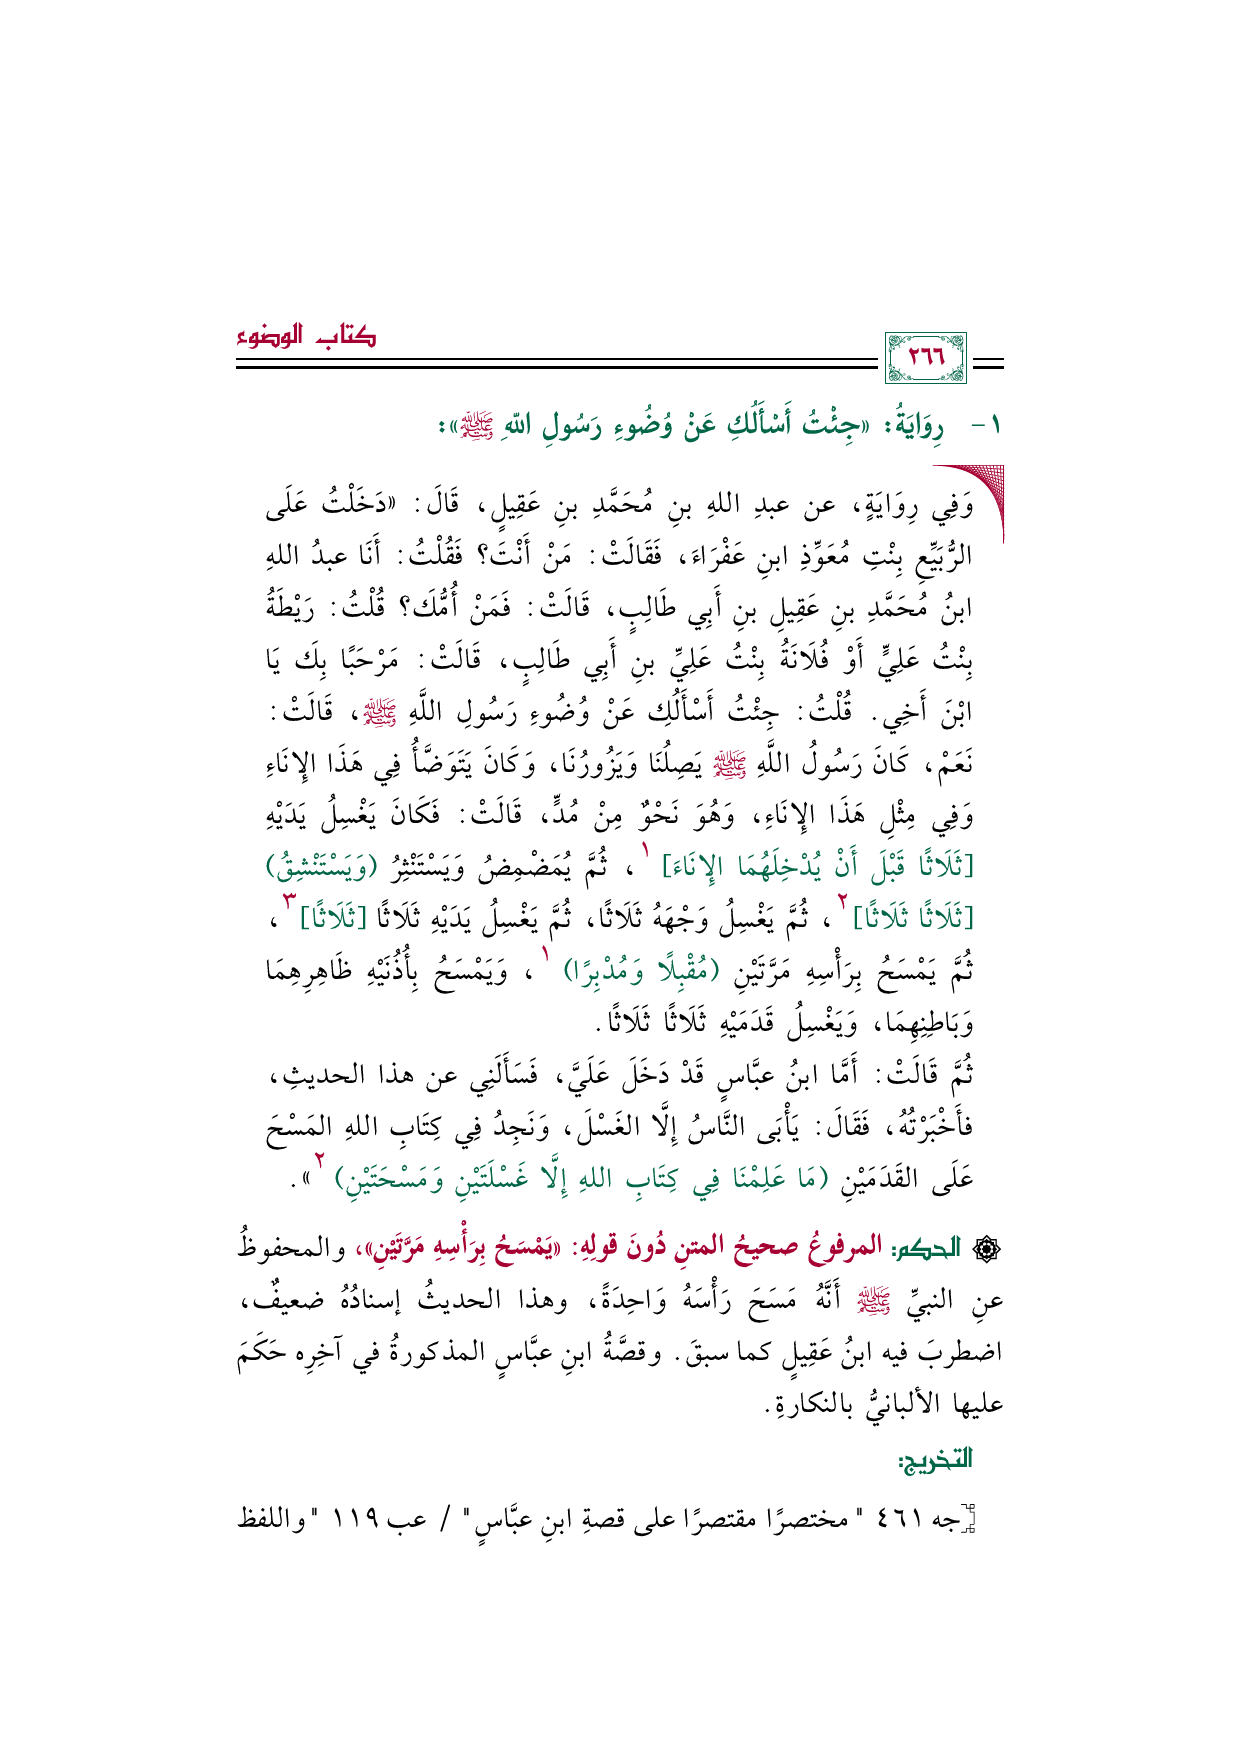 كتاب الوضوء
٢٦٦
١- رِوَايَةُ: «جِئْتُ أَسْأَلُكِ عَنْ وُضُوءِ رَسُولِ اللهِ ﷺ»:
وَفِي رِوَايَةٍ، عن عبدِ اللهِ بنِ مُحَمَّدِ بنِ عَقِيلٍ، قَالَ: «دَخَلْتُ عَلَى
الرُّبَيِّعِ بِنْتِ مُعَوِّذِ ابنِ عَفْرَاءَ، فَقَالَتْ: مَنْ أَنْتَ؟ فَقُلْتُ: أَنَا عبدُ اللهِ
ابنُ مُحَمَّدِ بنِ عَقِيلِ بنِ أَبِي طَالِبٍ، قَالَتْ: فَمَنْ أُمُّكَ؟ قُلْتُ: رَيْطَةُ
بِنْتُ عَلِيٍّ أَوْ فُلَانَةُ بِنْتُ عَلِيِّ بنِ أَبِي طَالِبٍ، قَالَتْ: مَرْحَبًا بِكَ يَا
ابْنَ أَخِي. قُلْتُ: جِئْتُ أَسْأَلُكِ عَنْ وُضُوءِ رَسُولِ اللَّهِ ﷺ، قَالَتْ:
نَعَمْ، كَانَ رَسُولُ اللَّهِ ﷺ يَصِلُنَا وَيَزُورُنَا، وَكَانَ يَتَوَضَّأُ فِي هَذَا الإِنَاءِ
وَفِي مِثْلِ هَذَا الإِنَاءِ، وَهُوَ نَحْوٌ مِنْ مُدٍّ، قَالَتْ: فَكَانَ يَغْسِلُ يَدَيْهِ
[ثَلَاثًا قَبْلَ أَنْ يُدْخِلَهُمَا الإِنَاءَ]١، ثُمَّ يُمَضْمِضُ وَيَسْتَنْثِرُ (وَيَسْتَنْشِقُ)
[ثَلَاثًا ثَلَاثًا]٢، ثُمَّ يَغْسِلُ وَجْهَهُ ثَلَاثًا، ثُمَّ يَغْسِلُ يَدَيْهِ ثَلَاثًا [ثَلَاثًا]٣،
ثُمَّ يَمْسَحُ بِرَأْسِهِ مَرَّتَيْنِ (مُقْبِلًا وَمُدْبِرًا)١، وَيَمْسَحُ بِأُذُنَيْهِ ظَاهِرِهِمَا
وَبَاطِنِهِمَا، وَيَغْسِلُ قَدَمَيْهِ ثَلَاثًا ثَلَاثًا.
ثُمَّ قَالَتْ: أَمَّا ابنُ عبَّاسٍ قَدْ دَخَلَ عَلَيَّ، فَسَأَلَنِي عن هذا الحديثِ،
فأَخْبَرْتُهُ، فَقَالَ: يَأْبَى النَّاسُ إِلَّا الغَسْلَ، وَنَجِدُ فِي كِتَابِ اللهِ المَسْحَ
عَلَى القَدَمَيْنِ (مَا عَلِمْنَا فِي كِتَابِ اللهِ إِلَّا غَسْلَتَيْنِ وَمَسْحَتَيْنِ)٢».
الحكم: المرفوعُ صحيحُ المتنِ دُونَ قولِهِ: «يَمْسَحُ بِرَأْسِهِ مَرَّتَيْنِ»، والمحفوظُ
عنِ النبيِّ ﷺ أَنَّهُ مَسَحَ رَأْسَهُ وَاحِدَةً، وهذا الحديثُ إسنادُهُ ضعيفٌ،
اضطربَ فيه ابنُ عَقِيلٍ كما سبقَ. وقصَّةُ ابنِ عبَّاسٍ المذكورةُ في آخِرِه حَكَمَ
عليها الألبانيُّ بالنكارةِ.
التخريج:
[جه ٤٦١ "مختصرًا مقتصرًا على قصةِ ابنِ عبَّاسٍ" / عب ١١٩ "واللفظ